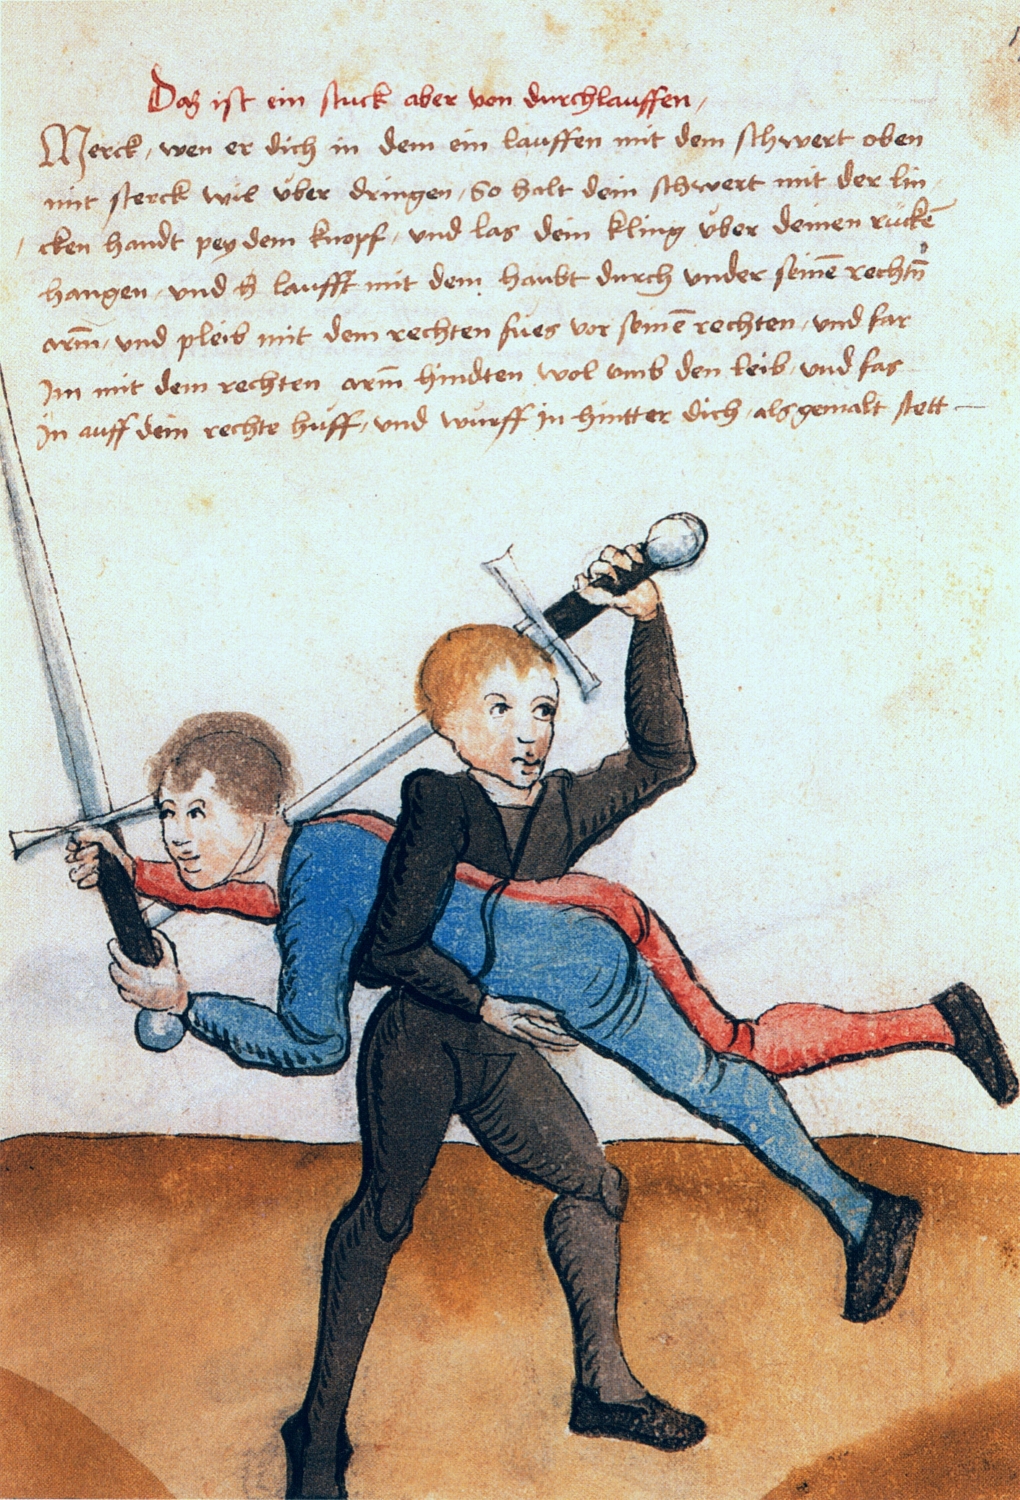 Daß ist ein stuck aber von durchlauffen /
Merck / wen er dich in dem ein lauffen mit dem schwert oben
mit sterck wil über dringen / So halt dein schwert mit der lin /
cken handt pey dem knopf / und las dein kling über deinen rückē
hangen / und laufft mit dem haubt durch under seinē rechtn̄
arm̄ / und pleib mit dem rechten fues vor seinē rechten / und far
Im mit dem rechten arm̄ hindten wol umb den leib / und fas
In auff dein rechte hüff / und würff in hintter dich / als gemalt stett —